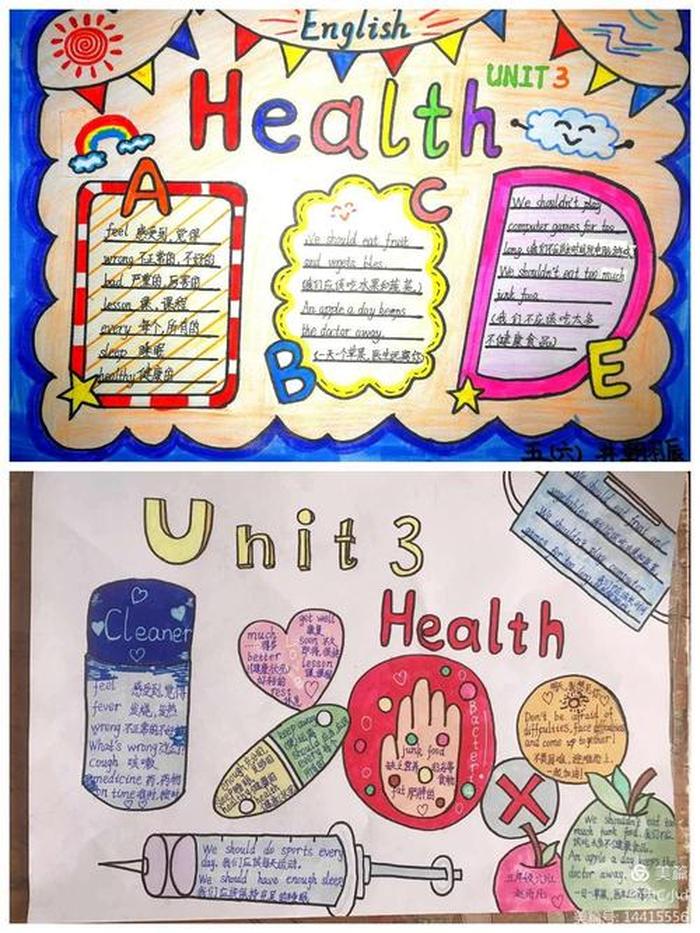 English
UNIT 3
Health
A
feel 感受到,觉得
wrong 不正常的,不好的
bad 严重的,厉害的
lesson 课,课程
every 每个,所有的
sleep 睡眠
healthy 健康的
B
C
We should eat fruit
and
(我们应该吃水果和蔬菜。)
An apple a day
the doctor away.
(一天一个苹果,医生远离你)
We shouldn't play
computer games for too
long
We shouldn't eat too much
junk food.
(我们不应该吃太多
不健康食品)
E
五(六)
Unit 3
Health
We should eat fruit and
vegetables
We shouldn't play computer
games for too long.
Cleaner
feel 感受到,觉得
fever 发烧,发热
wrong 不正常的
What's wrong
cough 咳嗽
medicine 药,药物
on time 准时,按时
much
……得多
better
(健康状况)
好转的
rest
get well
康复
soon 不久
lesson
课,课程
keep away
should 应该
every
enough
足够的
healthy 健康的
health
Bacteria
junk food
fat 肥胖的
Don't be afraid of
difficulties, face
and come up together!
一起加油!
We should do sports every
day. 我们应该每天运动。
We should have enough sleep.
我们应该保持充足的睡眠。
We shouldn't eat too
much junk food. 我们不应
该吃太多不健康食品。
An apple a day keeps the
doctor away.
美篇
美篇号: 14415556